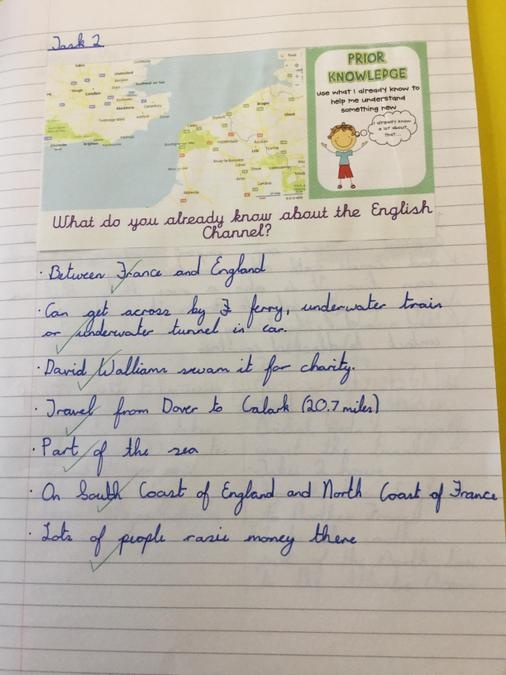 Task 2
PRIOR
KNOWLEDGE
Use what I already know to
help me understand
something new
I already know
a lot about
that...
What do you already know about the English
Channel?
· Between France and England
· Can get across by ferry, underwater train
or underwater tunnel in car.
· David Walliams swam it for charity.
· Travel from Dover to Calark (20.7 miles)
· Part of the sea
· On South Coast of England and North Coast of France
· Lots of people rasie money there